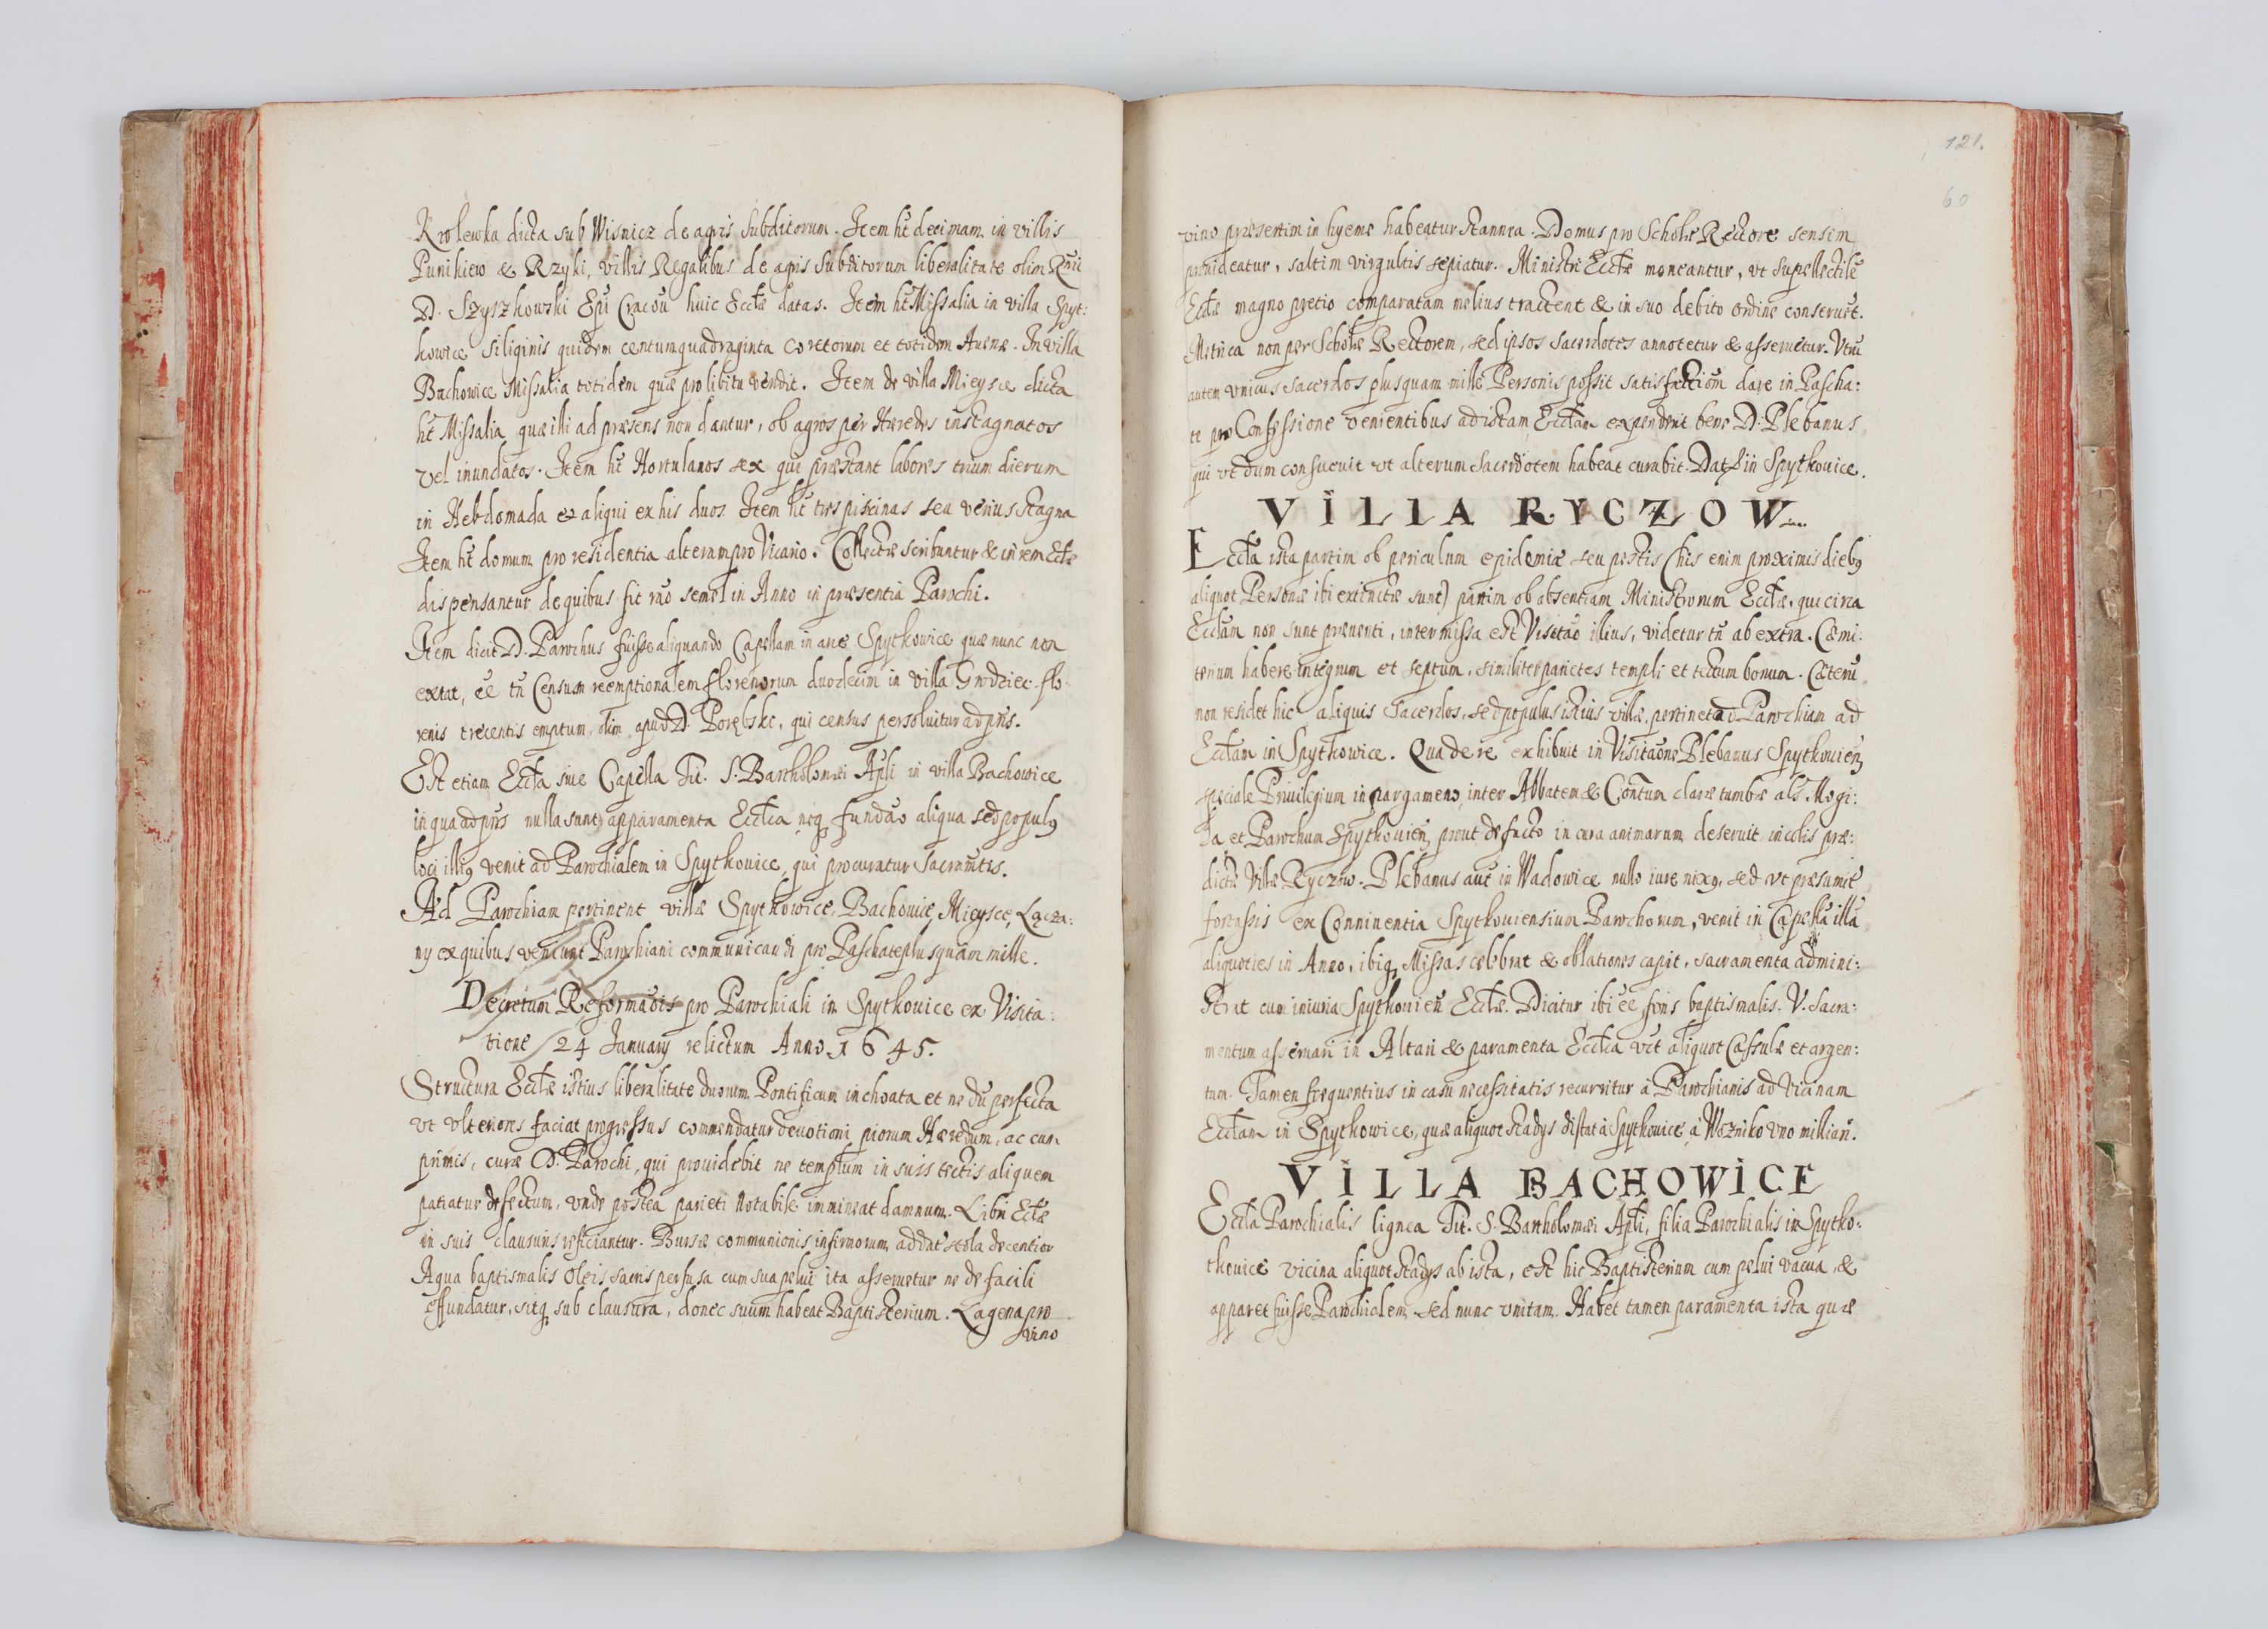 Krolewka dicta sub Wisnicz de agris subditorum. Item ht decimam in villis
Punikiew & Rzyki, villis Regalibus de agris subditorum liberalitate olim Rmi
D. Szyszkowski Epi Cracou huic Eccłæ datas. Item ht Missalia in villa Spyt:
kowice siliginis quidem centumquadraginta coretorum et totidem Auenæ. In villa
Bachowice Missalia totidem quæ pro libitu vendit. Item de villa Mieysce dicta
ht Missalia quæ illi ad præsens non dantur, ob agros per Hæredes instagnatos
vel inundatos. Item ht Hortulanos sex qui præstant labores trium dierum
in Hebdomada & aliqui ex his duos. Item ht tres piscinas seu verius stagna
Item ht domum pro residentia alteram pro Vicario. Collectæ scribuntur & in rem Eccłæ
dispensantur de quibus fit rao semel in Anno in præsentia Parochi.
Item dicit D. Parochus fuisse aliquando Capellam in arce Spytkowice quæ nunc non
extat, ee tn Censum reemptionalem florenorum duodecim in villa Grodziec flo:
renis trecentis emptum olim apud D. Porębski, qui census persoluitur ad pñs.
Est etiam Eccła siue Capella Tit. S. Bartholomæi Apli in villa Bachowice
in qua ad pñs nulla sunt apparamenta Ecclica neq fundao aliqua sed populq
loci illiq venit ad Parochialem in Spytkouice, qui procuratur sacramtis.
Ad Parochiam pertinent villæ Spytkowice, Bachouice, Mieysce, Łącza:
ny ex quibus veniunt Parochiani communicandi pro Paschate plusquam mille.
Decretum Reformaois pro Parochiali in Spytkouice ex Visita:
tione 24 January relictum Anno 1645.
Structura Eccłæ istius liberalitate duorum Pontificum inchoata et nedu perfecta
vt vlteriores faciat progressus commendatur deuotioni piorum Hæredum, ac cum
primis, curæ D. Parochi, qui prouidebit ne templum in suis tectis aliquem
patiatur defectum, vnde postea parieti notabile immineat damnum. Libri Eccłæ
in suis clausuris reficiantur. Bursæ communionis infirmorum addat stola decentior
Aqua baptismalis Oleis sacris perfusa cum sua pelui ita asseruetur ne de facili
effundatur, sitq sub clausura, donec suum habeat Baptisterium. Lagena pro
vino
121.
60
vino præsertim in hyeme habeatur stannea. Domus pro Scholæ Rectore sensim
prouideatur, saltim virgultis sepiatur. Ministri Eccłæ moneantur, vt supellectile
Eccłæ magno pretio comparatam melius tractent & in suo debito ordine conseruet.
Metrica non per Scholæ Rectorem, sed ipsos Sacerdotes annotetur & asseruetur. Vtru
autem vnicus Sacerdos plusquam mille Personis possit satisfactiom dare in Pascha:
te pro Confessione venientibus ad istam Eccłam expendent bene D. Plebanus
qui vt dum consueuit vt alterum Sacerdotem habeat curabit. Dat in Spytkouice.
VILLA RYCZOW
Eccła ista partim ob periculum epidemiæ seu pestis (his enim proximis diebq
aliquot Personæ ibi extinctæ sunt) partim ob absentiam Ministrorum Eccłæ, qui circa
Eccłam non sunt præuenti, intermissa est Visitao illius, videtur tn ab extra. Cæmi:
terium habere integrum et septum, similiter parietes templi et tectum bonum. Cæteru
non residet hic aliquis Sacerdos, sed populus istius villæ pertinet ad Parochiam ad
Eccłam in Spytkowice. Qua de re exhibuit in Visitaone Plebanus Spytkouien
speciale Priuilegium in pargameno inter Abbatem & Contum claræ tumbæ als Mogi:
la et Parochum Spytkouien, prout de facto in cura animarum deseruit incolis præ:
dictæ Villæ Ryczow. Plebanus aut in Wadowice nullo iure nixq, sed vt præsumit
fortassis ex Conniuentia Spytkouiensium Parochorum, venit in Capella illa
aliquoties in Anno, ibiq Missas celebrat & oblationes capit, sacramenta admini:
strat cum iniuria Spytkouien Eccłæ. Dicitur ibi ee fons baptismalis. V. Sacra:
mentum asseruari in Altari & paramenta Ecclica vit aliquot Casulæ et argen:
tum. Tamen frequentius in casu necessitatis recurritur à Parochianis ad Vicinam
Eccłam in Spytkowice, quæ aliquot stadys distat à Spytkouice, à Wozniko vno milliari.
VILLA BACHOWICE
Eccła Parochialis lignea Tit. S. Bartholomæi Apli, filia Parochialis in Spytko:
tkouice vicina aliquot stadys ab ista, est hic Baptisterium cum pelui vacua, &
apparet fuisse Parochialem sed nunc vnitam. Habet tamen paramenta ista quæ